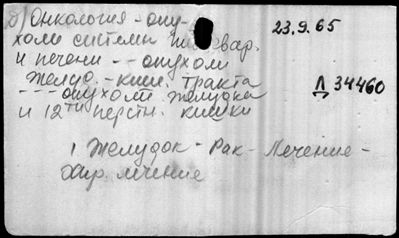 б) Онкология - опу-
холи системы пищевар.
и печени -- опухоли
желуд.-киш. тракта
--- опухоли желудка
и 12ти перстн. кишки
23.9.65
Л 34460
1 Желудок - Рак - Лечение -
хир. лечение